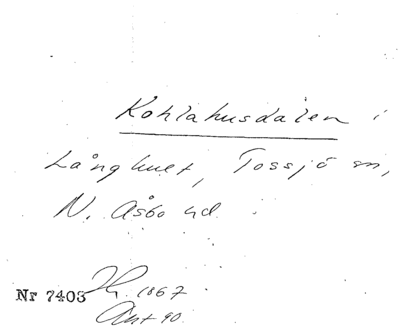 Kohlahusdalen i
Långhult, Tossjö sn,
N. Åsbo hd.
Nr 7403 1867
Ant 90